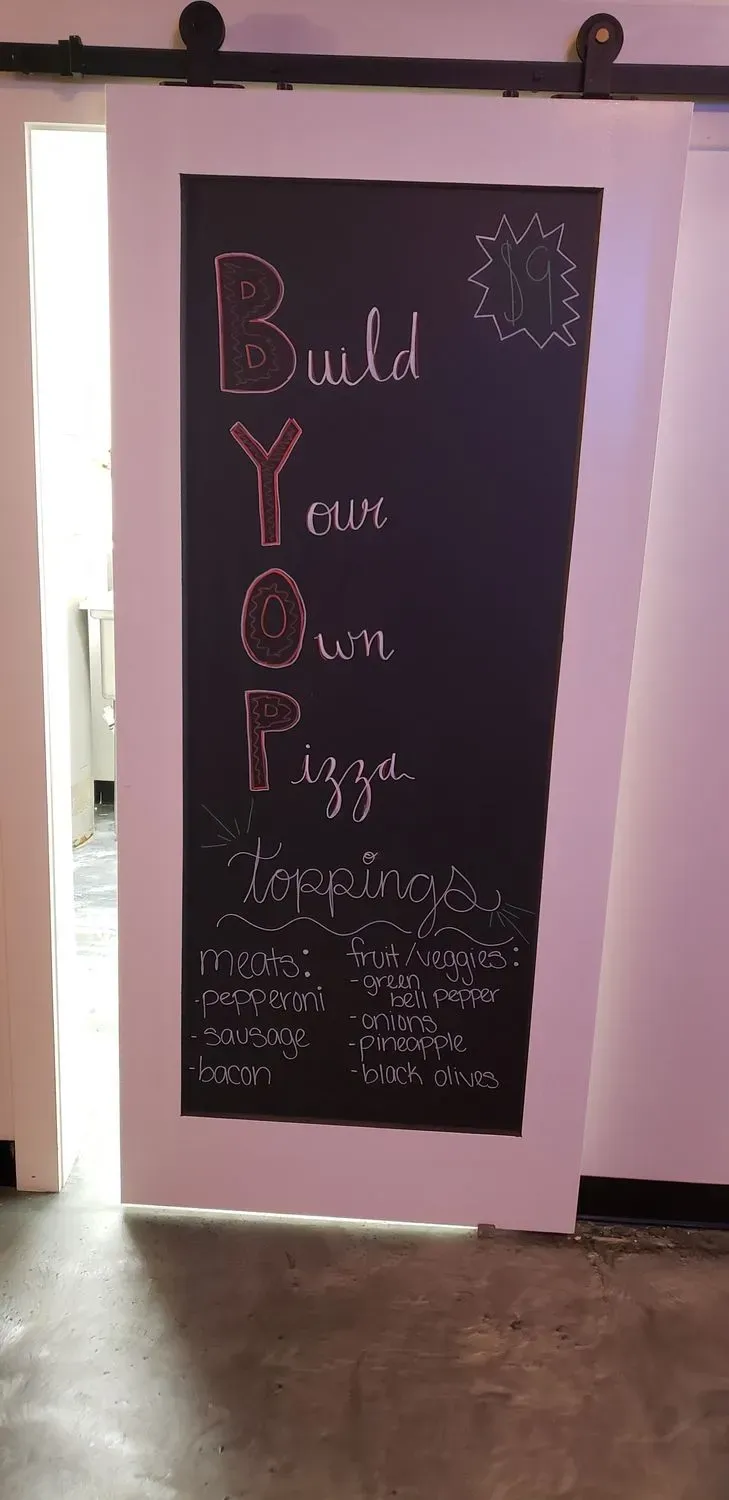 $9
Build
Your
Own
Pizza
toppings
meats:
-pepperoni
-sausage
-bacon
fruit/veggies:
-green
bell pepper
-onions
-pineapple
-black olives